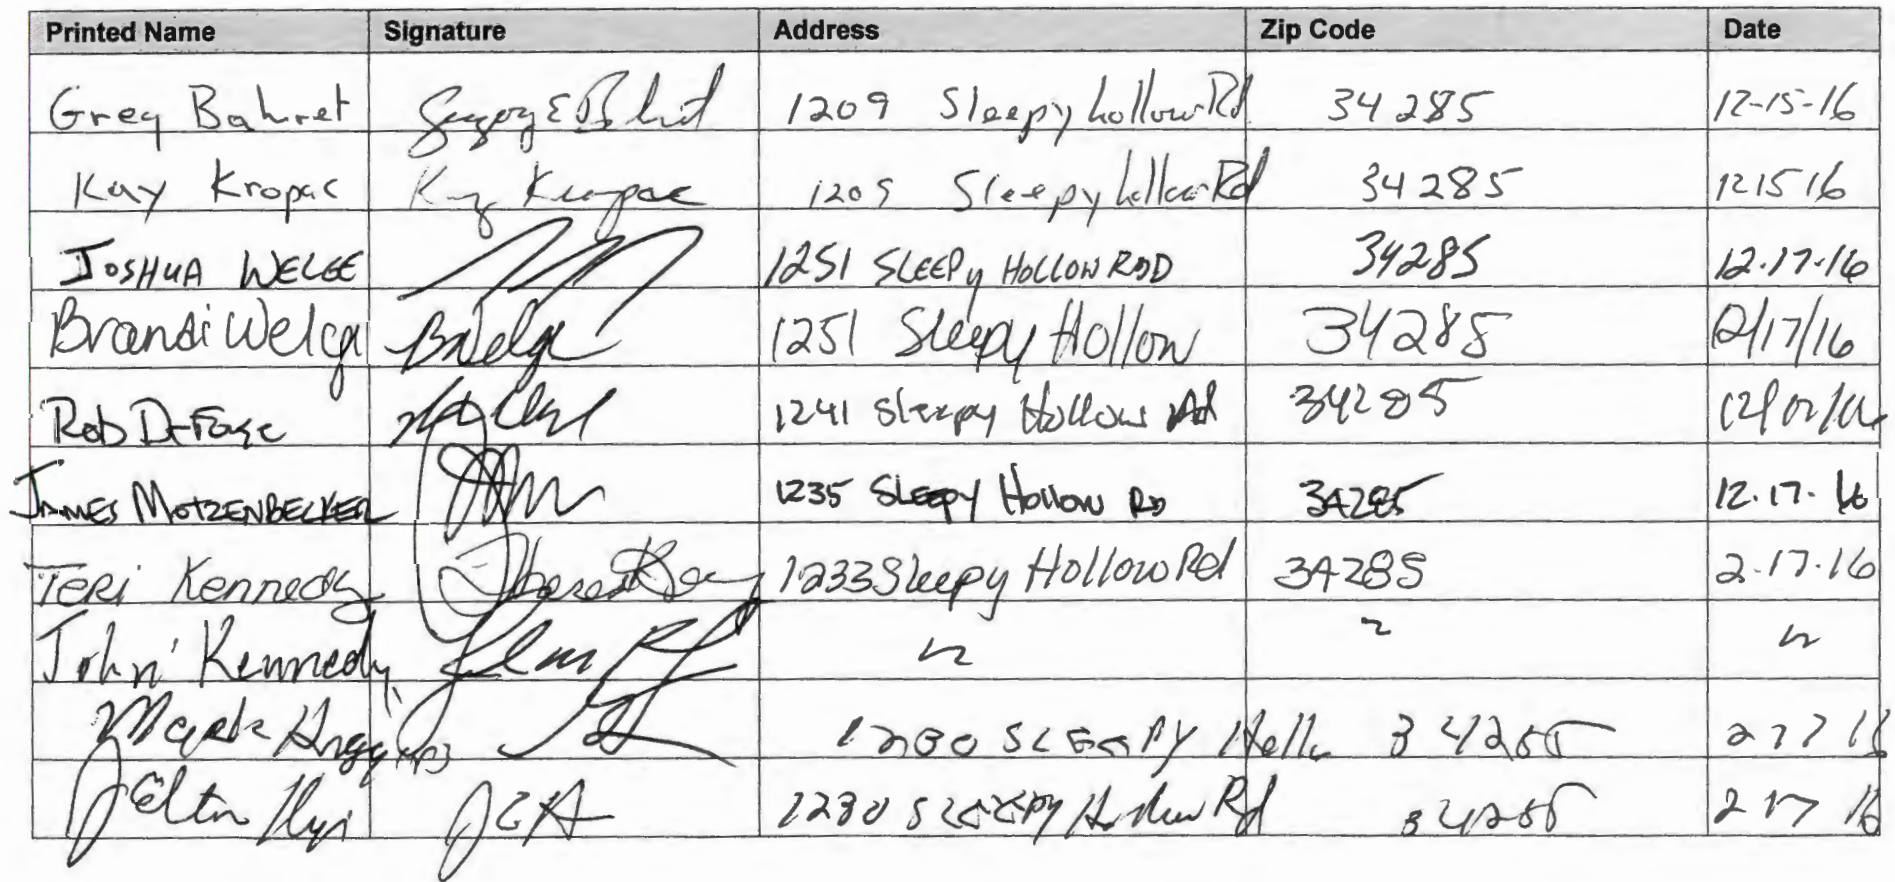 Printed Name Signature Address Zip Code Date
Greg Bahret 1209 Sleepy hollow Rd 34285 12-15-16
Kay Kropac Kay Kropac 1209 Sleepy hollow Rd 34285 12 15 16
JOSHUA WELGE 1251 SLEEPY HOLLOW ROD 34285 12.17.16
Brandi Welga BWelga 1251 Sleepy Hollow 34285 12/17/16
Rob 1241 Sleepy Hollow Rd 34285
JAMES MOTZENBECKER 1235 SLEEPY HOLLOW RD 34285 12.17.16
TERI Kennedy 1233 Sleepy Hollow Rd 34285 2.17.16
John Kennedy
Mark 1230 SLEEPY Hollo 34285 2 17 16
JEH 1230 SLEEPY Hollow Rd 34285 2 17 16